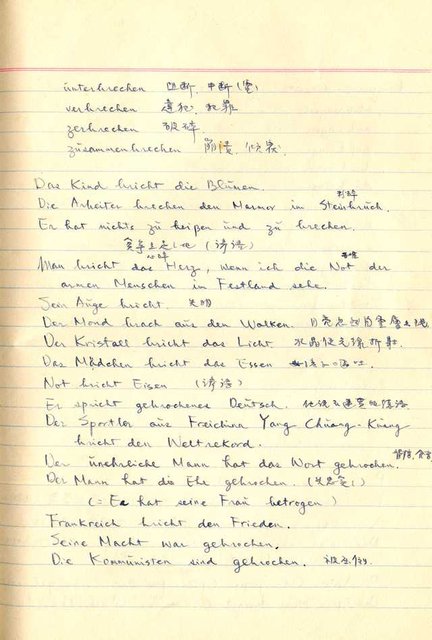 unterbrechen 阻断, 中断(電)
verbrechen 違犯, 犯罪
zerbrechen 破碎
zusammenbrechen 崩潰,
Das Kind bricht die Blumen.
Die Arbeiter brechen den Marmor im Steinbruch.
Er hat nichts zu beißen und zu brechen.
(諺語)
Man bricht das Herz, wenn ich die Not der
armen Menschen in Festland sehe.
Sein Auge bricht. 失明
Der Mond brach aus den Wolken.
Der Kristall bricht das Licht. 水晶使光線折射
Das Mädchen bricht das Essen
Not bricht Eisen (諺語)
Er spricht gebrochenes Deutsch.
Der Sportler aus Freichina Yang Chuang-Kuang
bricht den Weltrekord.
Der unehrliche Mann hat das Wort gebrochen.
Der Mann hat die Ehe gebrochen.
(= Er hat seine Frau betrogen)
Frankreich bricht den Frieden.
Seine Macht war gebrochen.
Die Kommunisten sind gebrochen.